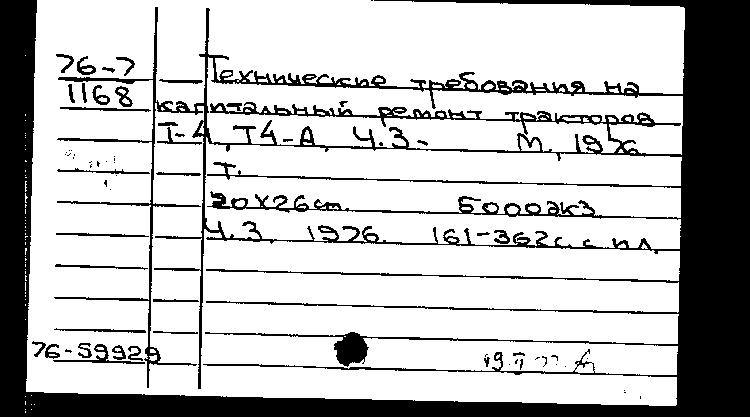 76-7
1168
Технические требования на
капитальный ремонт тракторов
Т-4, Т4-А. Ч.3- М., 1976.
Т.
20X26см. 5000экз.
Ч.3. 1976. 161-362с. с ил.
76-59929